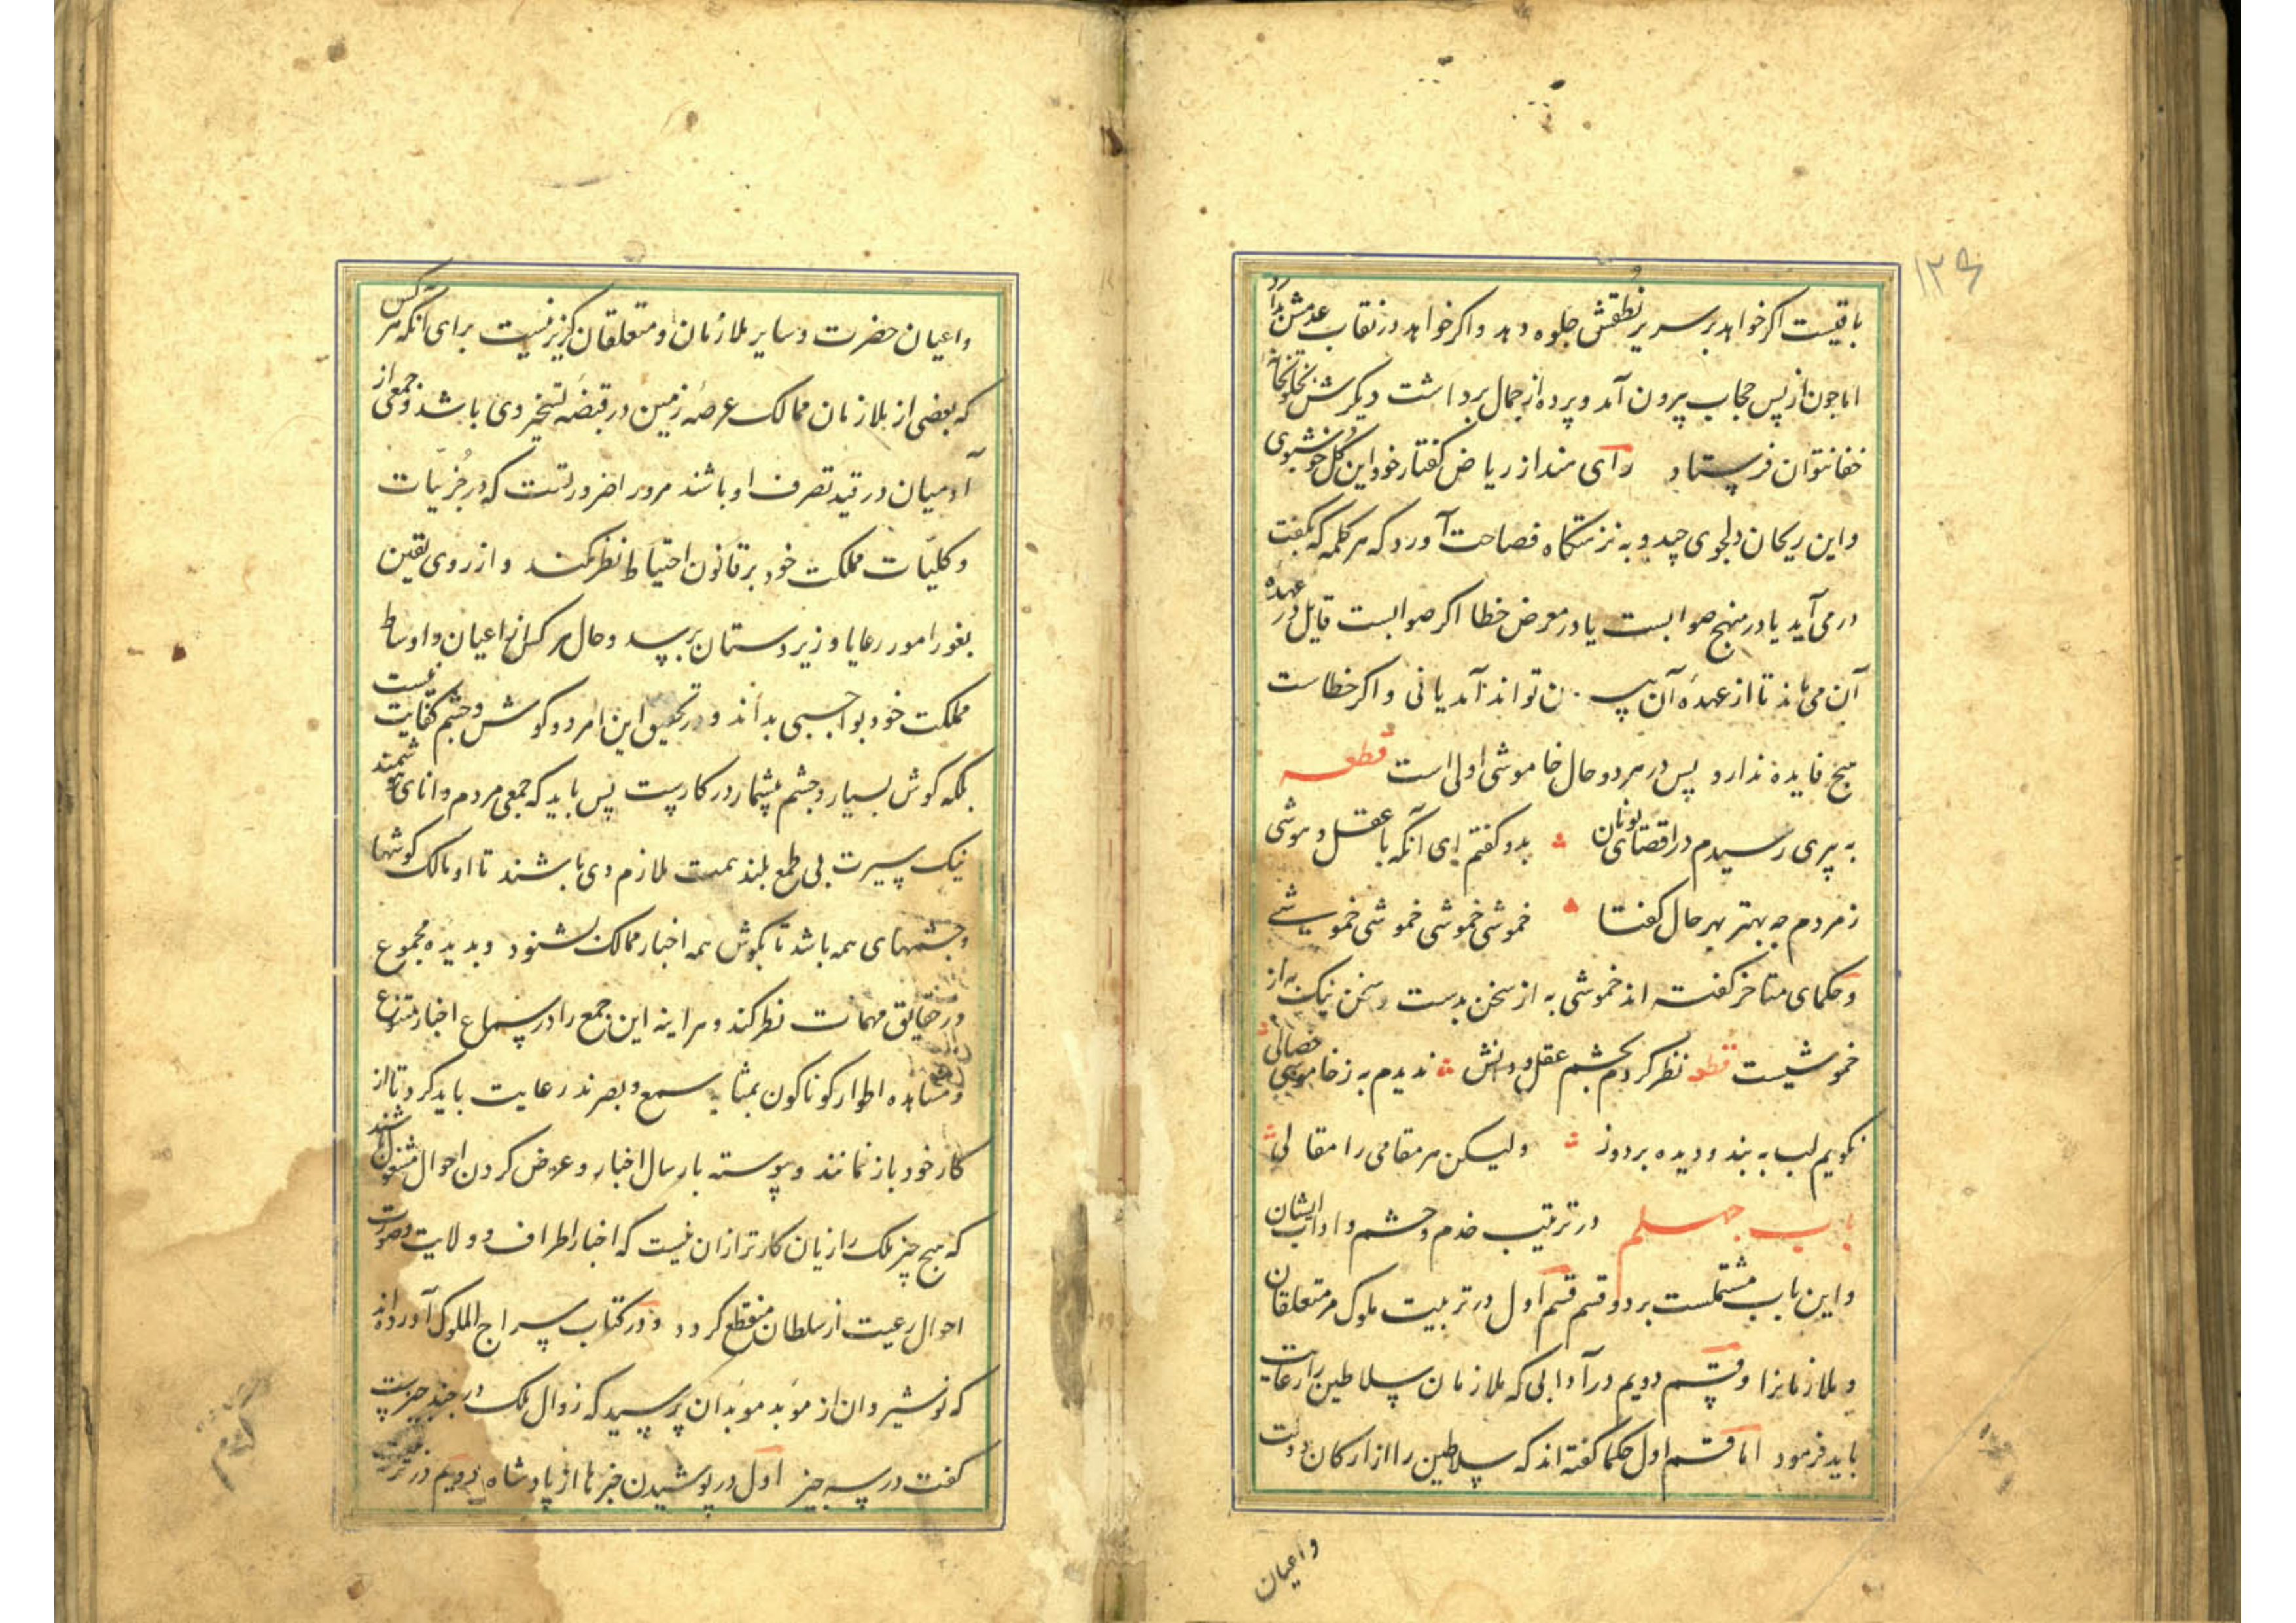 ۱۲۹
باقیست اکر خواهد بر سریر نطقش جلوه دهد و اکر خواهد در نقاب عدمش بدارد
اما جون از پس حجاب بیرون آمد و پرده از جمال برداشت دیکرش بخلوتخانه
خفا نتوان فرستاد رای هند از ریاض کفتار خود این کل خوشبوی
و این ریحان دلجوی چید و به نزهتکاه فصاحت آورد که هر کلمه که بکفت
در می آید یا در منهج صوابست یا در معرض خطا اکر صوابست قایل در عهده
آن می ماند تا از عهده آن بیرون تواند آمد یا نی و اکر خطاست
هیج فایده ندارد پس در هر دو حال خاموشی اولی است قطعه
به پیری رسیدم در اقصای یونان بدو کفتم ای آنکه با عقل و هوشی
ز مردم چه بهتر بهر حال کفتا خموشی خموشی خموشی خموشی
و حکمای متاخر کفته اند خموشی به از سخن بدست و سخن نیک به از
خموشیست قطعه نظر کردم بچشم عقل و دانش ندیدم به ز خاموشی خصالی
نکویم لب به بند و دیده بر دوز ولیکن هر مقامی را مقالی
باب جهلم در ترتیب خدم و حشم و اداب ایشان
و این باب مشتملست بر دو قسم قسم اول در تربیت ملوک مر متعلقان
و ملازمانرا و قسم دویم در آدابی که ملازمان سلاطین را رعایت
باید فرمود اما قسم اول حکما کفته اند که سلاطین را از ارکان دولت
واعیان
واعیان حضرت و سایر ملازمان و متعلقان کزیر نیست برای آنکه هر کس
که بعضی از بلا زمان ممالک عرصه زمین در قبضه تسخیر وی باشد و جمعی از
آدمیان در قید تصرف او باشند مرورا ضرورتست که در جزئیات
و کلیات مملکت خود بر قانون احتیاط نظر کند و از روی یقین
بغور امور رعایا و زیردستان برسد و حال هر کس از اعیان و اوساط
مملکت خود بواجبی بداند و در تحقیق این امر دو کوش و چشم کفایت نیست
بلکه کوش بسیار و چشم بیشمار در کارست پس باید که جمعی مردم دانای هوشمند
نیک سیرت بی طمع بلند همت ملازم وی باشند تا او مالک کوشها
و چشمهای همه باشد تا بکوش همه اخبار ممالک بشنود و بدیده مجموع
در حقایق مهمات نظر کند و هراینه این جمع را در سماع اخبار متنوع
و مشاهده اطوار کوناکون بمثابه سمع و بصر ند رعایت باید کرد تا از
کار خود باز نمانند و پیوسته بارسال اخبار و عرض کردن احوال مشغول باشند
که هیج چیز ملک را زیان کارتر ازان نیست که اخبار اطراف و ولایت و صورت
احوال رعیت از سلطان منقطع کردد و در کتاب سراج الملوک آورده اند
که نوشیروان از موبد موبدان پرسید که زوال ملک در چند چیزست
کفت در سه جیز اول در پوشیدن خبرها از پادشاه دویم در تربیت